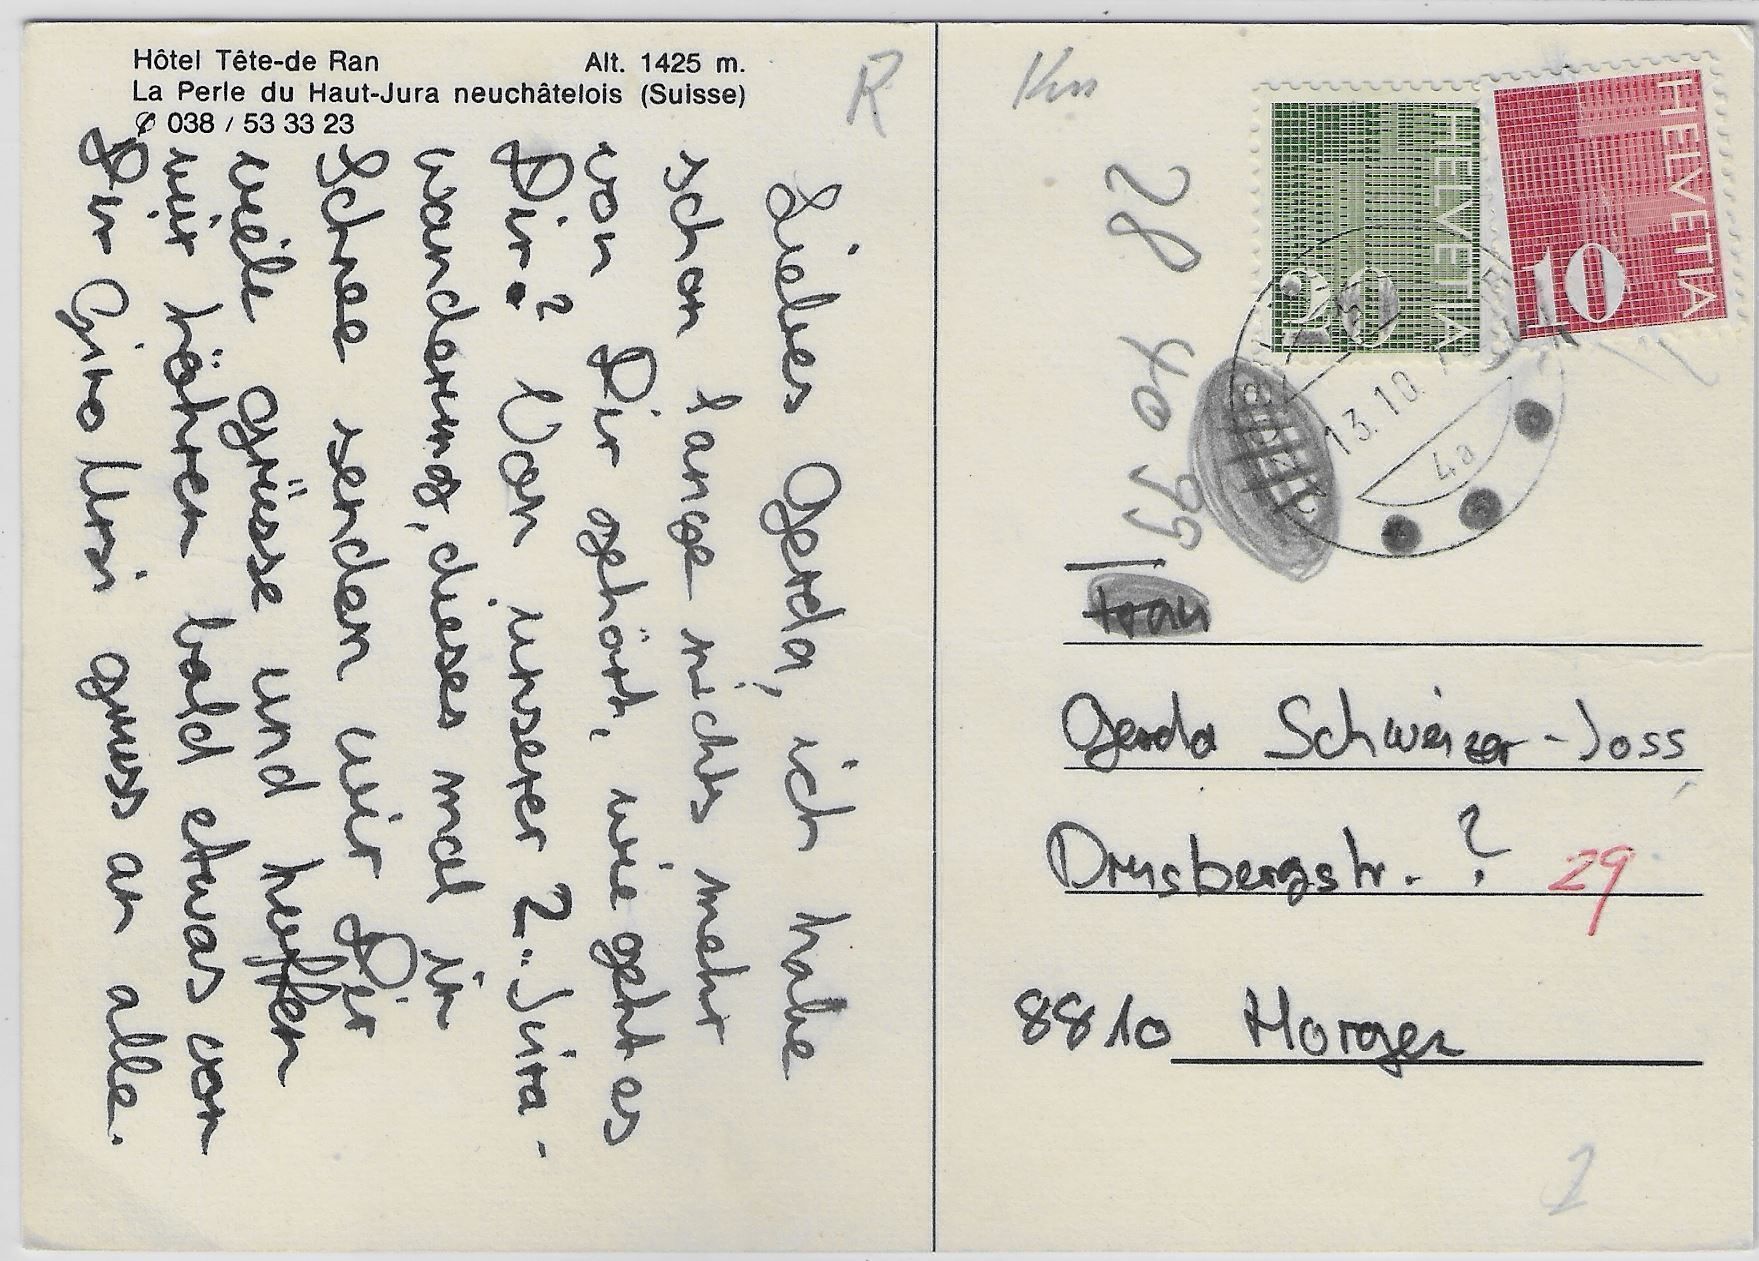 Hôtel Tête-de Ran Alt. 1425 m.
La Perle du Haut-Jura neuchâtelois (Suisse)
✆ 038 / 53 33 23
Liebes Gerda, ich habe
schon lange nichts mehr
von Dir gehört, wie geht es
Dir? Von unserer 2. Jura-
wanderung, dieses mal in
Schnee senden wir Dir
viele Grüsse und hoffen
wir hören bald etwas von
Dir Gino Ursi gruss an alle.
R
Km
28 40 99
HELVETIA
20
HELVETIA
10
13.10.
4a
Frau
Gerda Schweizer-Joss
Drusbergstr. ? 29
8810 Horgen